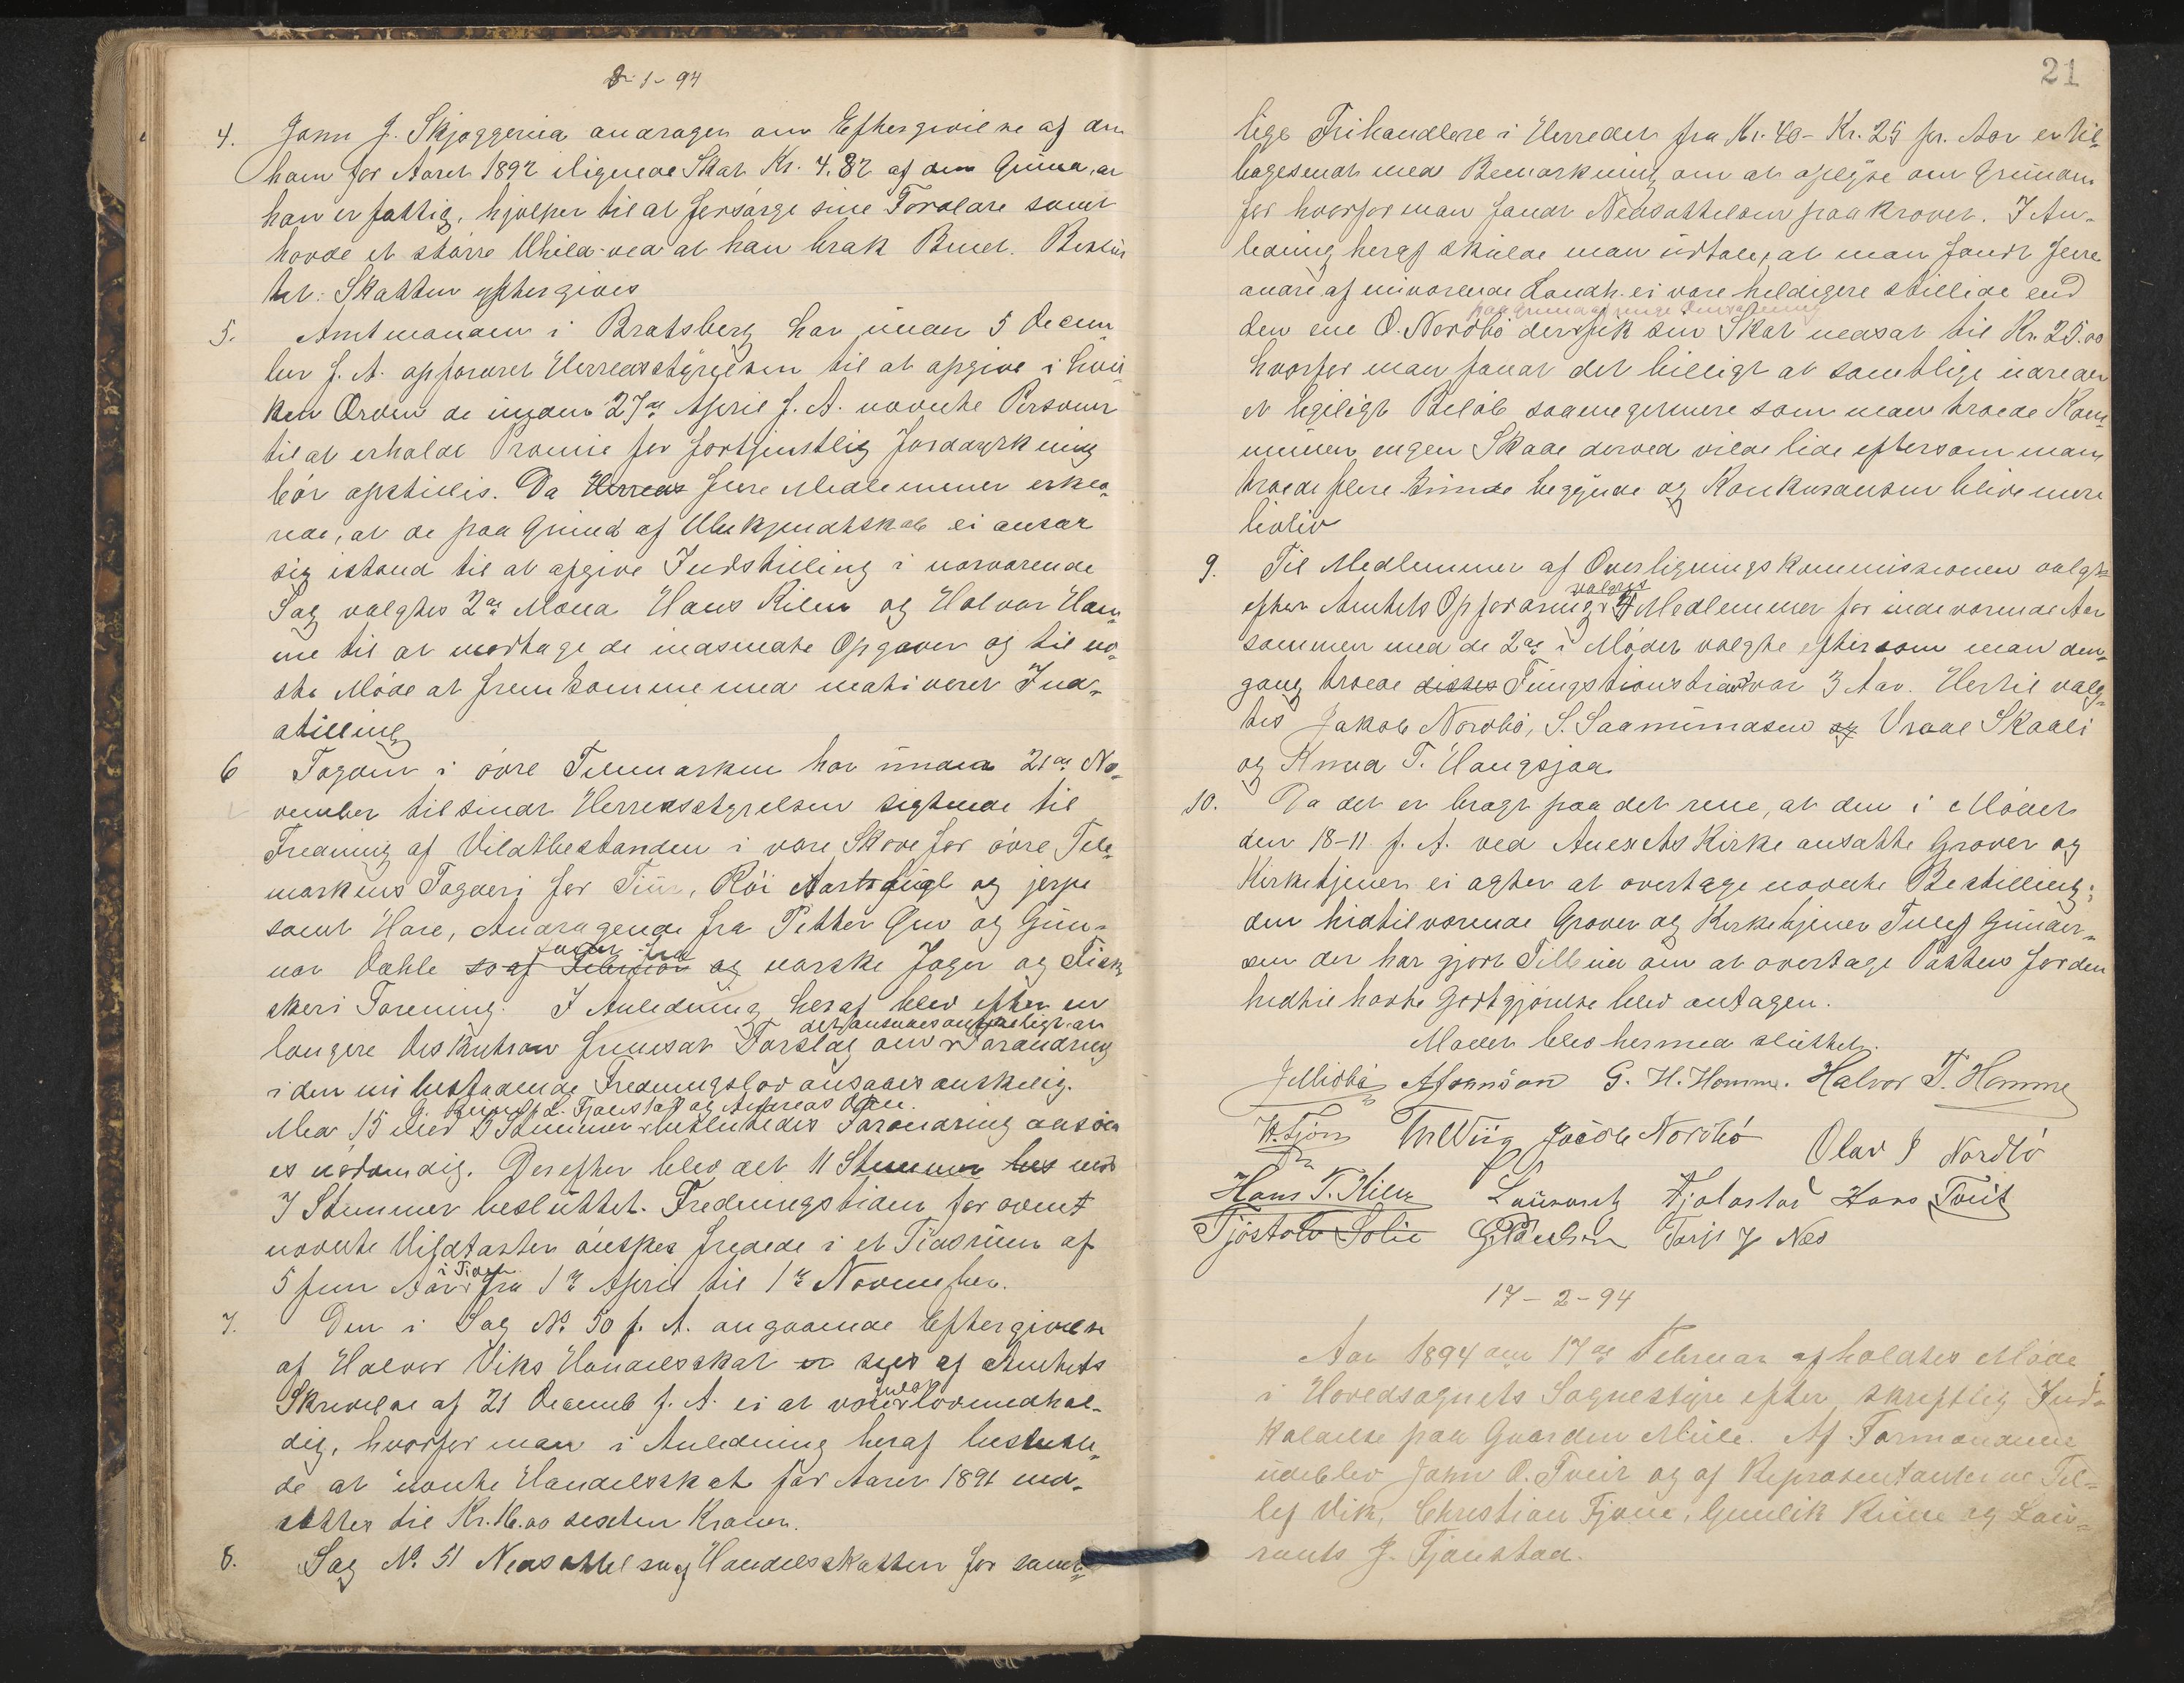 8-1-94
4. John J. Skjeggeria andrager om Eftergivelse af den
ham for Aaret 1892 ilignede Skat Kr. 4.82 af den Grund, at
han er fattig, hjelper til at forsørge sine Forældre samt
havde et større Uheld ved at han brak Benet. Beslut-
tet: Skatten eftergives
5. Amtmanden i Bratsberg har under 5 Decem-
ber f. A. opfordret Herredsstyrelsen til at opgive i hvil-
ken Orden de under 27de April f. A. nævnte Personer
til at erholde Præmie for fortjenstlig Jorddyrkning
bør opstilles. Da Herreds flere Medlemmer erklæ-
rede, at de paa Grund af Ubekjendtskab ei ansaa
sig istand til at afgive Indstilling i nærværende
Sag valgtes 2de Mænd Hans Kilen og Halvor Hom-
me til at modtage de indsendte Opgaver og til næ-
ste Møde at fremkomme med motiveret Ind-
stilling
6 Fogden i øvre Telemarken har under 21de No-
vember tilsendt Herredsstyrelsen sigtende til
Fredning af Vildtbestanden i vore Skove for øvre Tele-
markens Fogderi for Tiur, Røi Aarfugl og jerpe
samt Hare, Andragende fra Petter Quo og Gun-
nar Dahle so af Februar og norske Jæger og Fisk-
skeri Forening. I Anledning heraf blev efter en
det ansaaes ønskeligt at
længere Diskution fremsat Forslag om Forandring
i den nu bestaaende Fredningslov ansaaes ønskelig.
G. Kriner L. Fjonstad og Andreas
Med 15 mod 3 Stemmer besluttedes Forandring ansees
es nødvendig. Derefter blev det 11 Stemmer bes mod
7 Stemmer besluttet. Fredningstiden for ovent
nævnte Vildtarter ønskes fredede i et Tidsrum af
i Tiden
5 fem Aar fra 1ste April til 1ste November.
7. Den i Sag No 50 f. A. angaaende Eftergivelse
af Halvor Viks Handelsskat er sees af Amtets
Skrivelse af 21 Decemb f. A. ei at være lovmedhol-
dig, hvorfor man i Anledning heraf beslutte-
de at nævnte Handelsskat for Aaret 1891 ned-
sættes til Kr. 16.00 sexten Kroner.
8. Sag No 51 Nedsættelse af Handelsskatten for samt-
21
lige Frihandlere i Herredet fra Kr. 40 - Kr. 25 pr. Aar er til-
bagesendt med Bemærkning om at oplyse om Grunden
for hvorfor man fandt Nedsættelsen paakrævet. I An-
ledning heraf skulde man udtale, at man fandt flere
andre af nuværende Landh. ei være heldigere stillede end
paa Grund af
den ene O. Nordbø der fik sin Skat nedsat til Kr. 25.00
hvorfor man fandt det billigt at samtlige udreder
et ligeligt Beløb saameget mere som man troede Kom-
munen ingen Skade derved vilde lide eftersom man
troede flere kunde begynde og Konkurancen blive mere
livliv
9. Til Medlemmer af Overligningskommissionen valgt
valgtes
efter Amtets Opfordring 4 Medlemmer for indeværende Aar
sammen med de 2de i Mødet valgte eftersom man den-
gang troede disses Fungstionstid var 3 Aar. Hertil valg-
tes Jakob Nordbø, S. Saamundsen og Vraal Skaali
og Knud T. Haugsjaa.
10. Da det er bragt paa det rene, at den i Mødet
den 18-11 f. A. ved Anexets Kirke ansatte Graver og
Kirketjener ei agter at overtage nævnte Bestilling;
den hidtilværende Graver og Kirketjener Tellef Gunder-
sen der har gjort Tilbud om at overtage Posten for den
hidtil havte Godtgjørelse blev antagen.
Mødet blev hermed sluttet.
G. H. Homme. Halvor T. Homme
Jacob Nordbø Olav J Nordbø
Hans T. Kilen Laurantz Fjalestad Hans Tveit
Tjøstolv Solie Tarje J Nes
17-2-94
Aar 1894 den 17de Februar afholdtes Møde
i Hovedsognets Sognestyre efter skriftlig Ind-
kaldelse paa Gaarden Mule. Af Formændene
udeblev John O. Tveit og af Repræsentanterne Tel-
lef Vik, Christian Fjone, Gunlik Kriner og Lau-
rants J. Fjonstad.